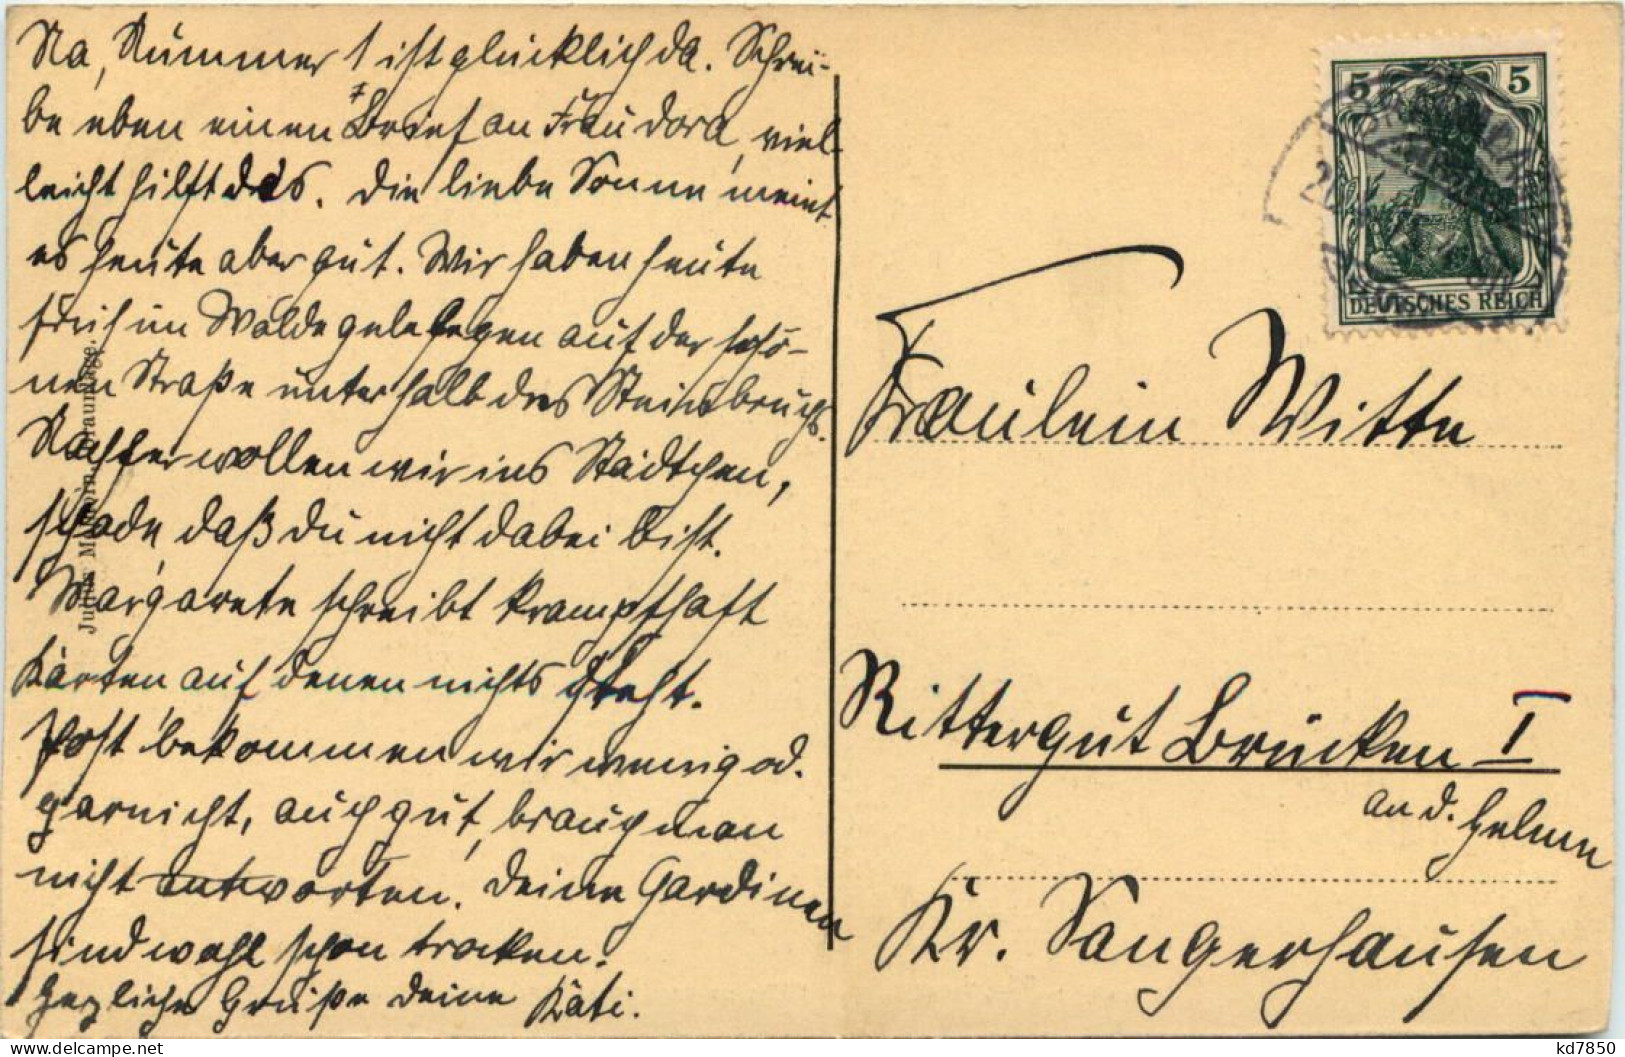 Na, Nummer 1 ist glücklich da. Schrei-
be eben einen Brief an Frau Dora, viel-
leicht hilft das. Die liebe Sonne meint
es heute aber gut. Wir haben heute
früh im Walde gelegen auf der schö-
nen Straße unterhalb des Steinbruchs.
Nachher wollen wir ins Städtchen,
schade, daß du nicht dabei bist.
Margarete schreibt krampfhaft
Karten, auf denen nichts steht.
Post bekommen wir wenig od.
garnicht, auch gut, brauch man
nicht antworten. Deine Gardinen
sind wohl schon trocken.
Herzliche Grüße deine Käti.
Julius Braunlage.
5 5
DEUTSCHES REICH
Fräulein Witte
Rittergut Brücken I
an d. Helme
Kr. Sangerhausen
kd7850